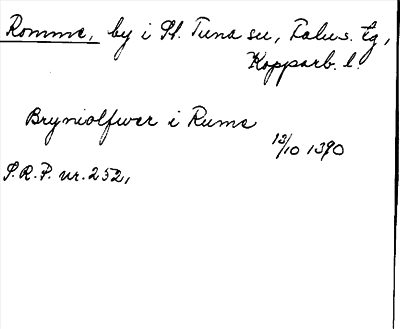 Romme, by i St. Tuna sn, Falus. tg,
Kopparb. l.
Bryniolfwer i Rume
13/10 1390
S.R.P. nr. 252,